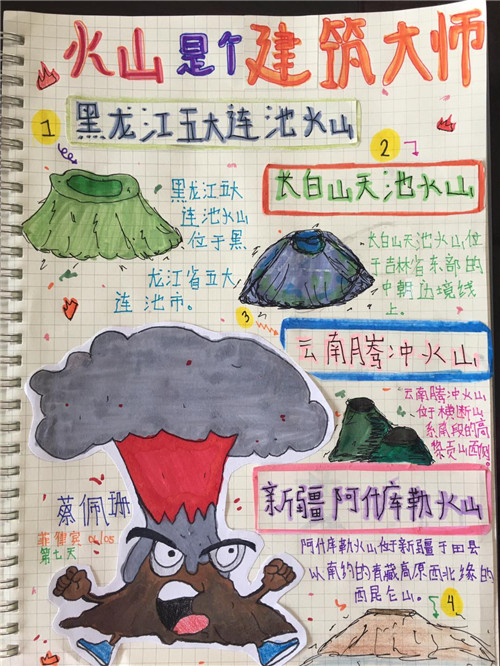 火山是个建筑大师
1
黑龙江五大连池火山
黑龙江五大
连池火山
位于黑
龙江省五大
连池市。
2
长白山天池火山
长白山天池火山,位
于吉林省东部的
中朝边境线
上。
3
云南腾冲火山
云南腾冲火山
位于横断山
系南段的高
黎贡山西侧
新疆阿什库勒火山
阿什库勒火山位于新疆于田县
以南约的青藏高原西北缘的
西昆仑山。
4
蔡佩珊
第七天